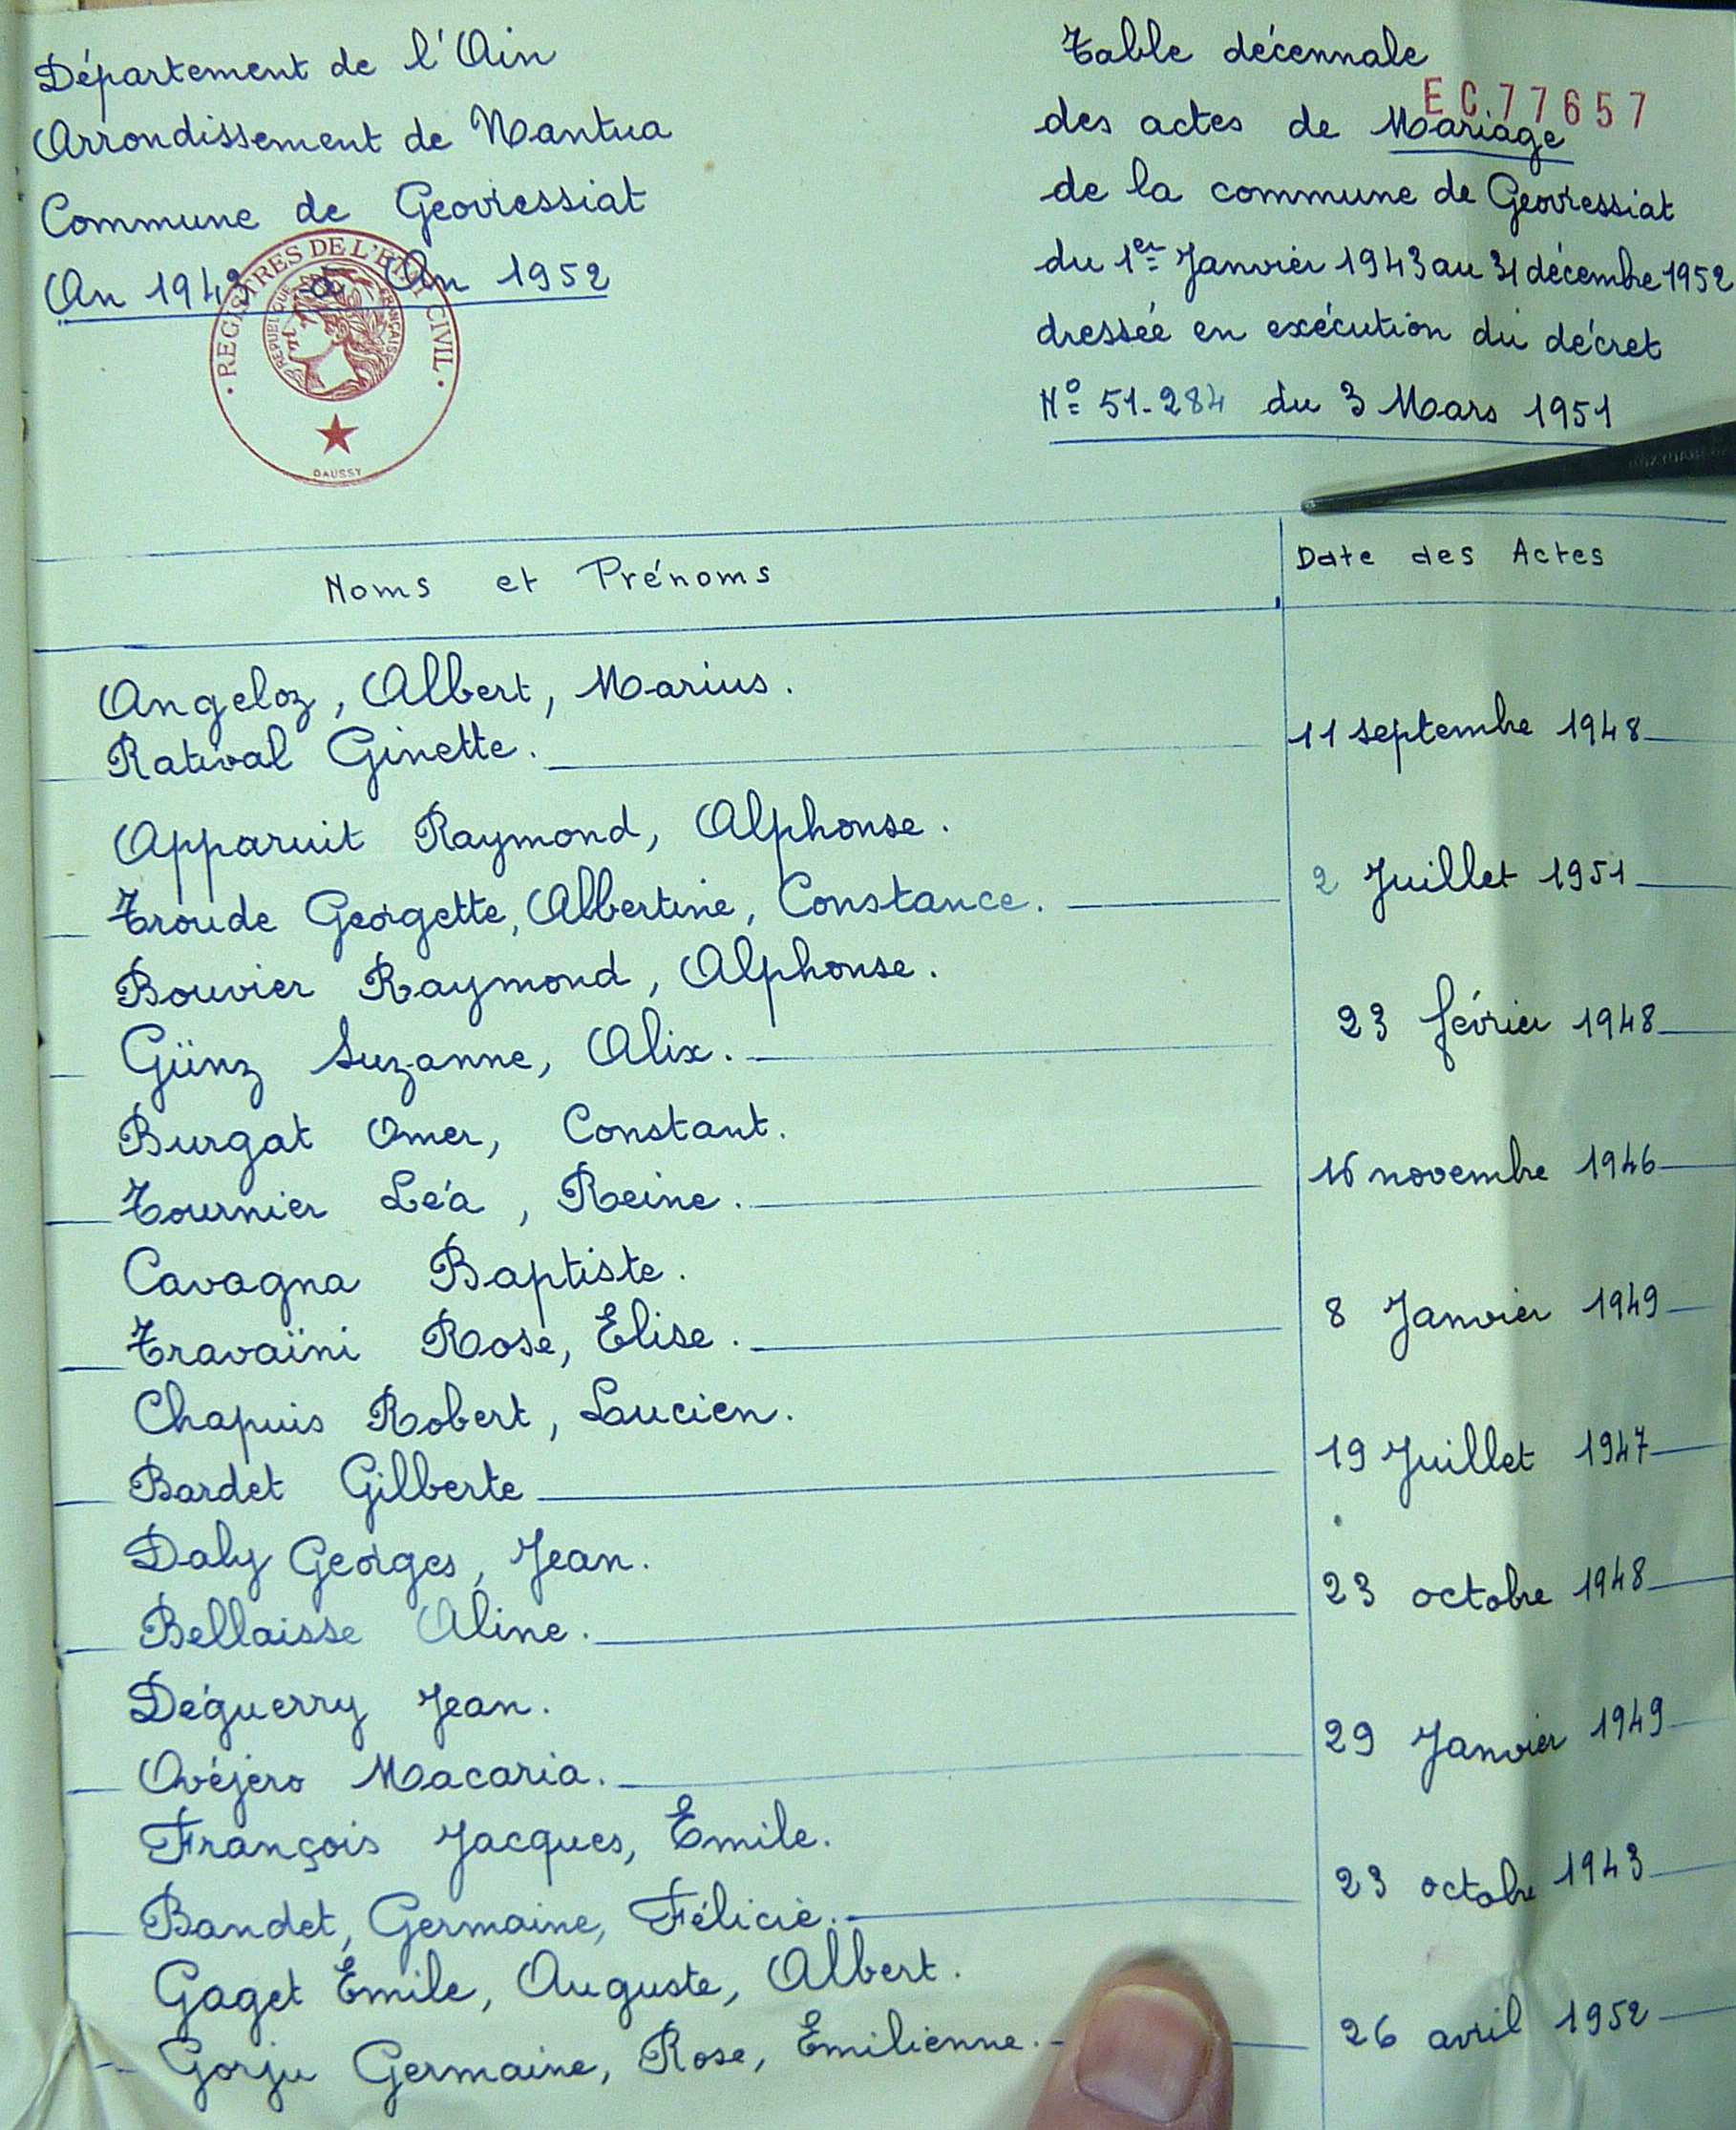 Département de l'Ain
Arrondissement de Nantua
Commune de Geovressiat
An 1943 à An 1952
REGISTRES DE L'ETAT CIVIL
REPUBLIQUE FRANÇAISE
DAUSSY
Table décennale
EC.77657
des actes de Mariage
de la commune de Geovressiat
du 1er Janvier 1943 au 31 décembre 1952
dressée en exécution du décret
N° 51-284 du 3 Mars 1951
Noms et Prénoms
Date des Actes
Angeloz, Albert, Marius.
Ratival Ginette.
11 septembre 1948
Apparuit Raymond, Alphonse.
Troude Georgette, Albertine, Constance.
2 Juillet 1951
Bouvier Raymond, Alphonse.
Günz Suzanne, Alix.
23 février 1948
Burgat Omer, Constant.
Tournier Léa, Reine.
16 novembre 1946
Cavagna Baptiste.
Travaïni Rose, Elise.
8 Janvier 1949
Chapuis Robert, Lucien.
Bardet Gilberte
19 Juillet 1947
Daly Georges, Jean.
Bellaisse Aline.
23 octobre 1948
Déguerry Jean.
Ovéjero Macaria.
29 Janvier 1949
François Jacques, Emile.
Bandet, Germaine, Félicie.
23 octobre 1943
Gaget Emile, Auguste, Albert.
Gorju Germaine, Rose, Emilienne.
26 avril 1952